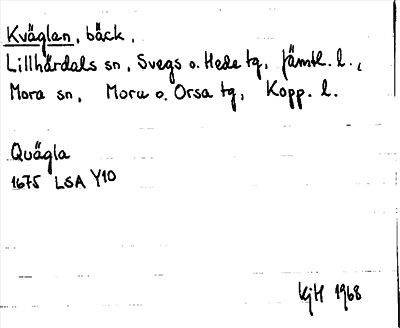 Kväglan, bäck,
Lillhärdals sn, Svegs o. Hede tg, Jämtl. l.,
Mora sn, Mora o. Orsa tg, Kopp. l.
Quägla
1675 LSA Y10
KjH 1968